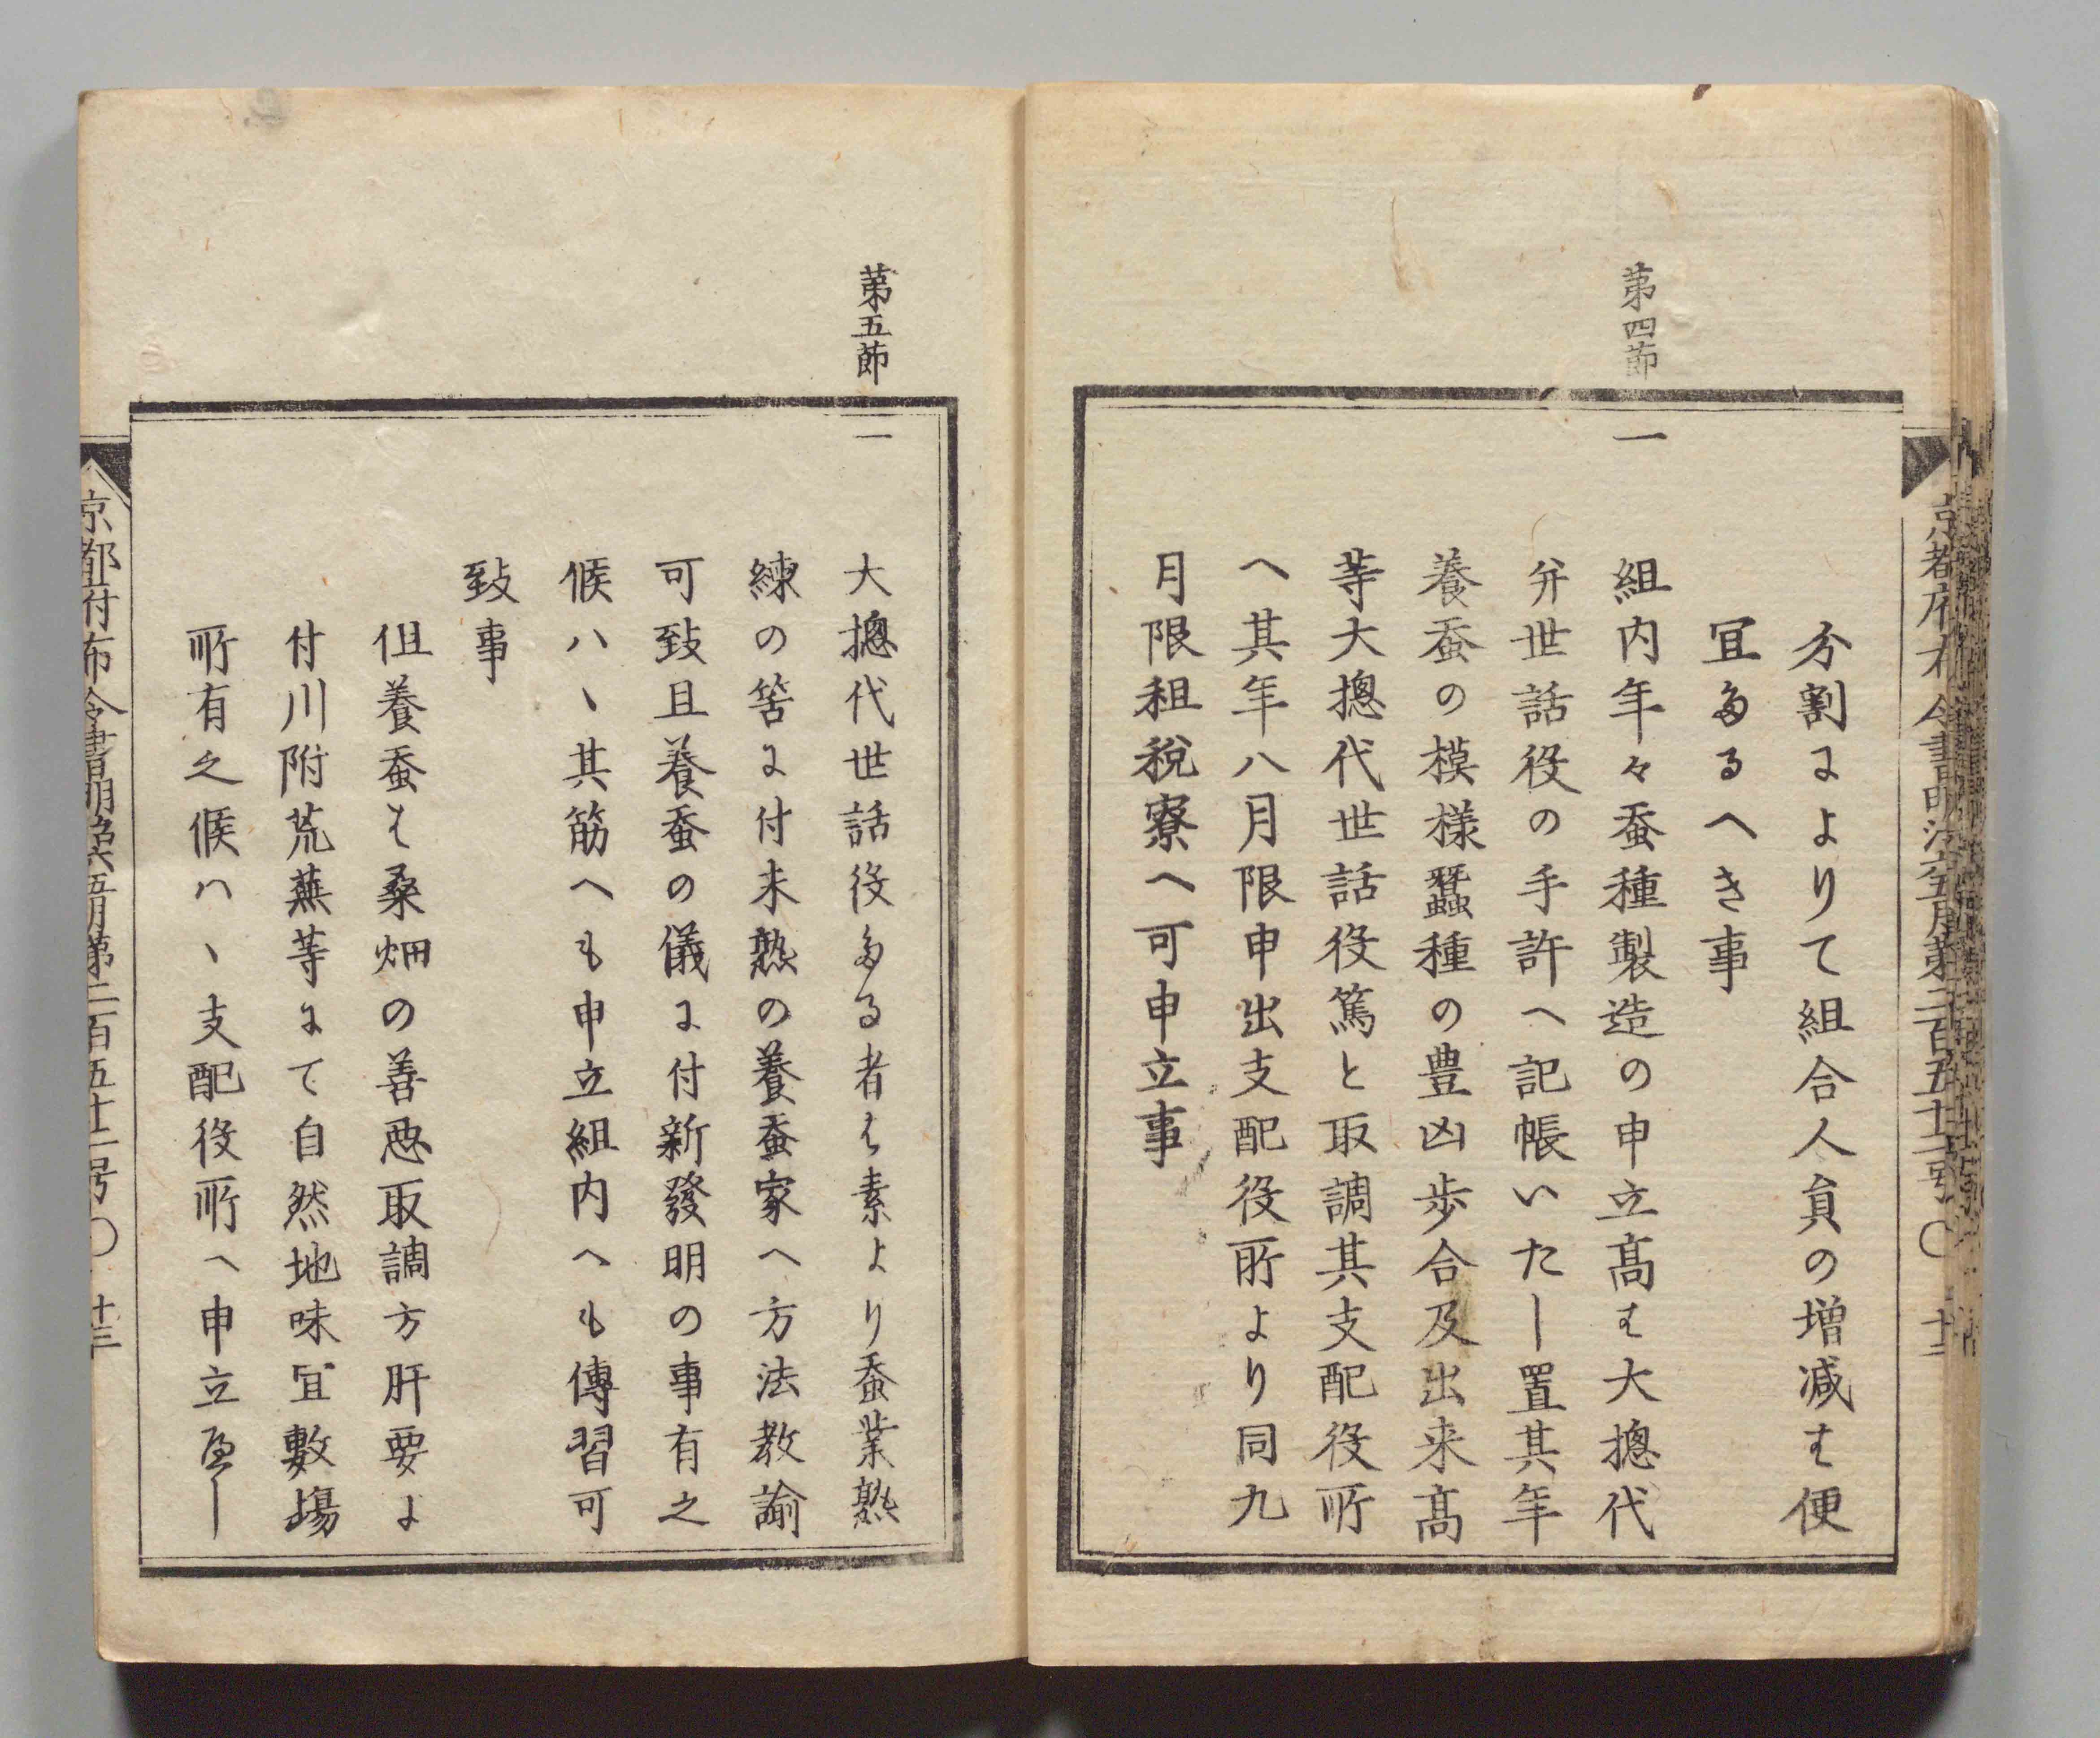 分割によりて組合人員の増减は便
宜たるへき事
第四節
一
組内年々蚕種製造の申立髙は大摠代
并世話役の手許へ記帳いたし置其年
養蚕の模様蠶種の豊凶歩合及出来髙
等大摠代世話役篤と取調其支配役所
へ其年八月限申出支配役所より同九
月限租税寮へ可申立事
第五節
一
大摠代世話役たる者は素より蚕業熟
練の筈に付未熟の養蚕家へ方法教諭
可致且養蚕の儀に付新發明の事有之
候ハヽ其筋へも申立組内へも傳習可
致事
但養蚕は桑畑の善惡取調方肝要に
付川附荒蕪等にて自然地味宜敷塲
所有之候ハヽ支配役所へ申立へし
京都府布令書明治六年五月第二百五十二号〇 廿三